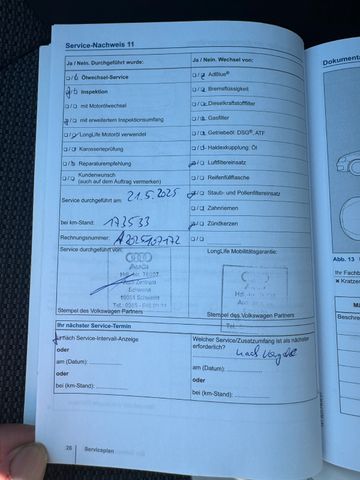 Service-Nachweis 11
Ja / Nein. Durchgeführt wurde:
Ölwechsel-Service
Inspektion
mit Motorölwechsel
mit erweitertem Inspektionsumfang
LongLife Motoröl verwendet
Karosserieprüfung
Reparaturempfehlung
Kundenwunsch
(auch auf dem Auftrag vermerken)
Service durchgeführt am: 21.5.2025
bei km-Stand: 173533
Rechnungsnummer: A2025107172
Service durchgeführt von:
Audi
Audi Zentrum
Schwerin
Stempel des Volkswagen Partners
Ja / Nein. Wechsel von:
AdBlue®
Bremsflüssigkeit
Dieselkraftstofffilter
Gasfilter
Getriebeöl: DSG®, ATF
Haldexkupplung: Öl
Luftfiltereinsatz
Reifenfüllflasche
Staub- und Pollenfiltereinsatz
Zahnriemen
Zündkerzen
LongLife Mobilitätsgarantie:
Audi
Tel.
Stempel des Volkswagen Partners
Ihr nächster Service-Termin
nach Service-Intervall-Anzeige
oder
am (Datum):
oder
bei (km-Stand):
Welcher Service/Zusatzumfang ist als nächster
erforderlich?
am (Datum):
oder
bei (km-Stand):
26 Serviceplan
Dokumenta
Abb. 13
Ihr Fachb
Kratzer
Beschre